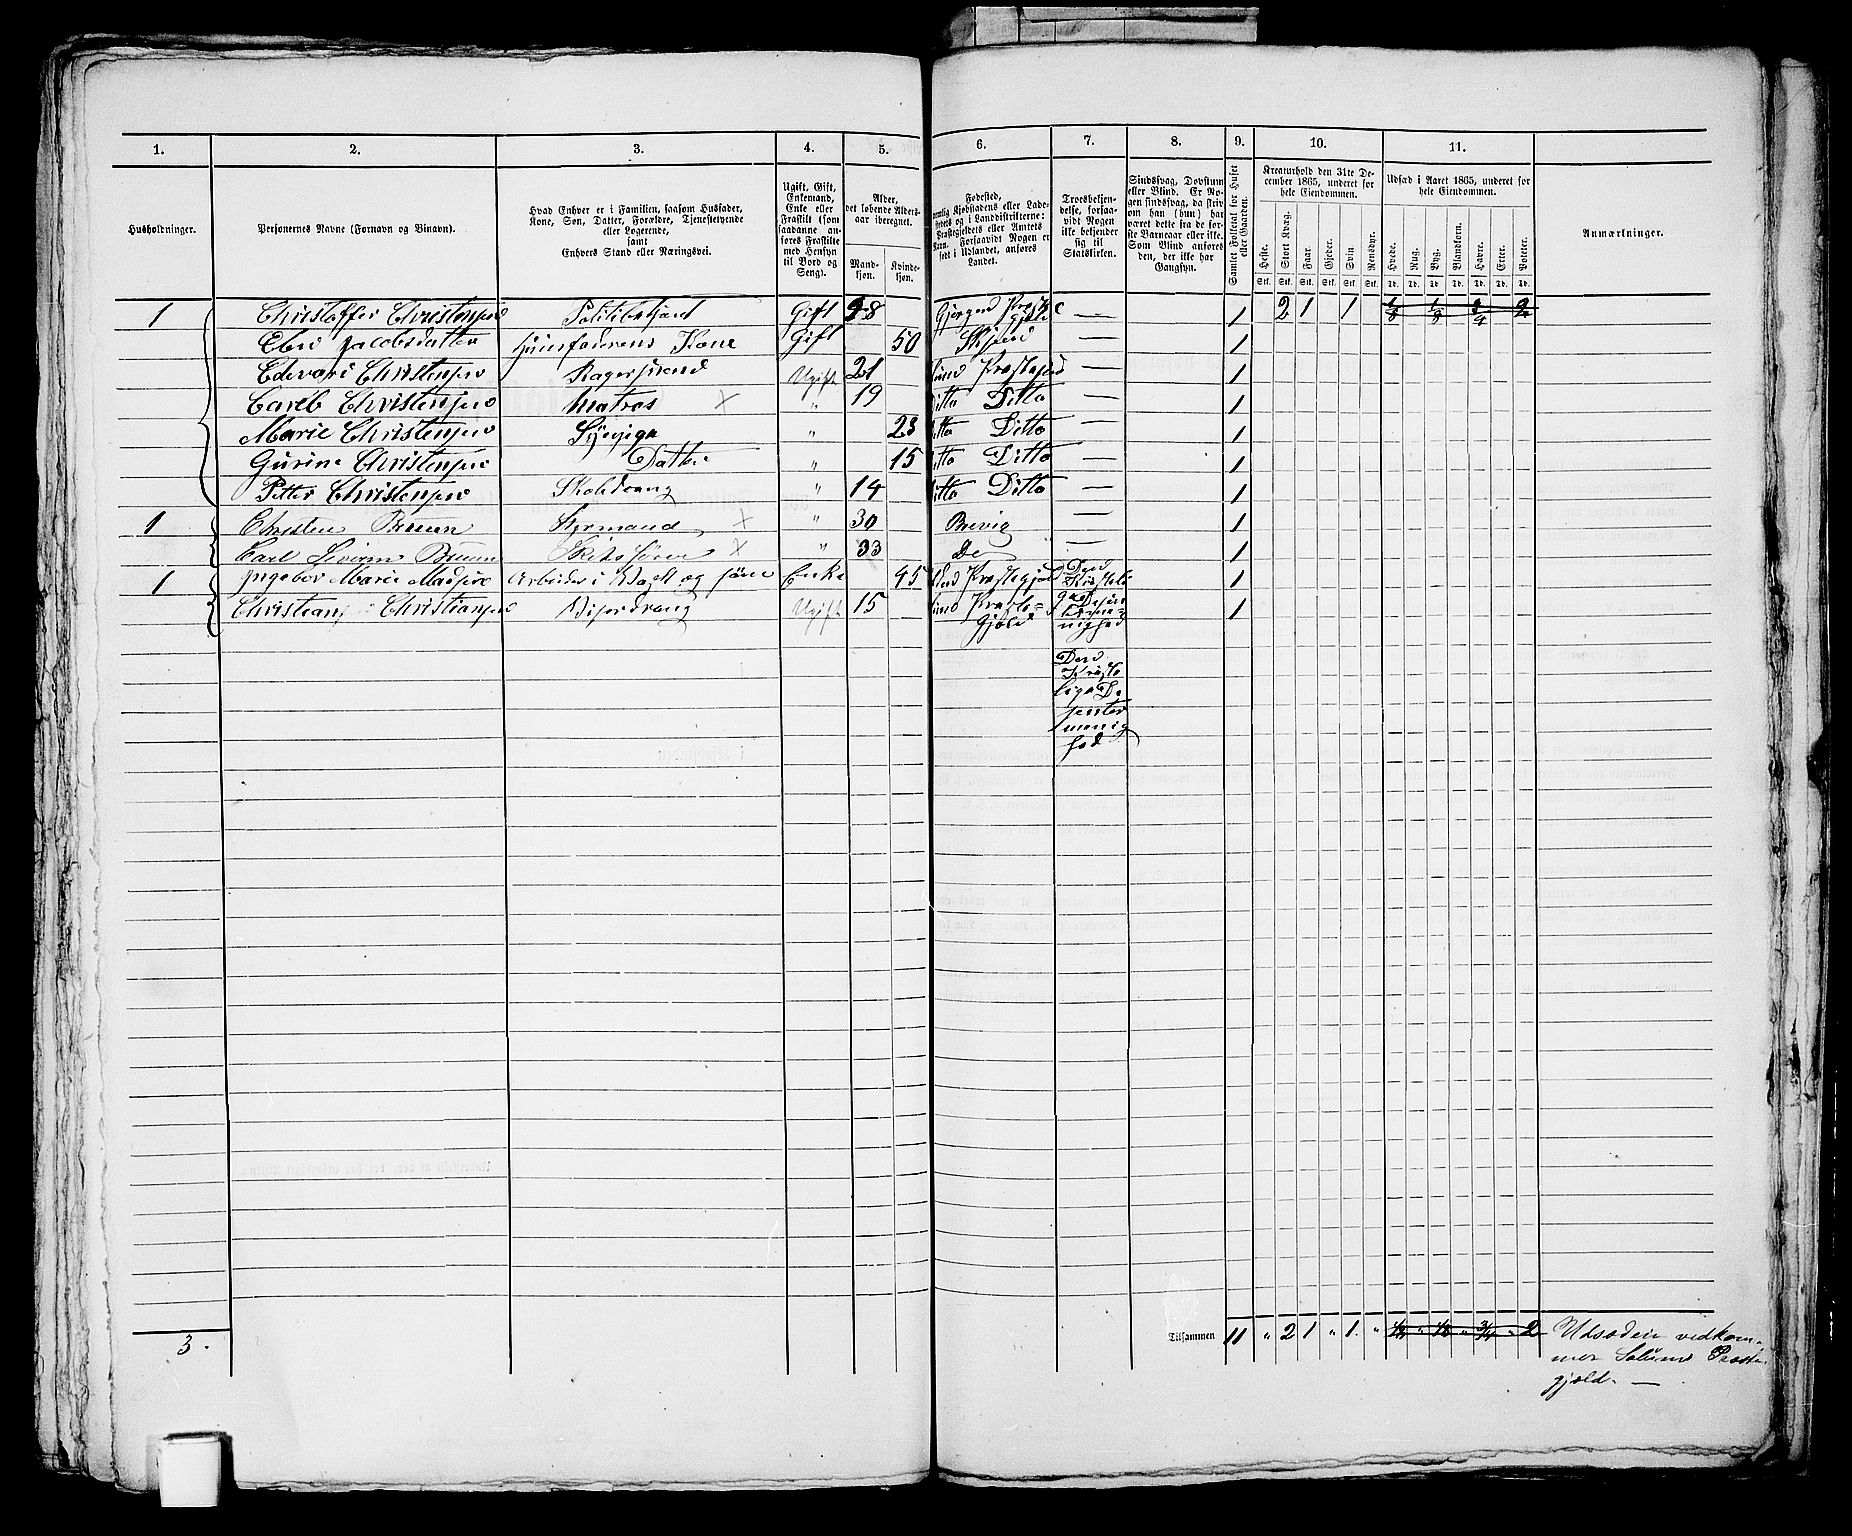 1. 2. 3. 4. 5. 6. 7. 8. 9. 10. 11.
Husholdninger.
Personernes Navne (Fornavn og Binavn).
Hvad Enhver er i Familien, saasom Husfader,
Kone, Søn, Datter, Forældre, Tjenestetyende
eller Logerende,
samt
Enhvers Stand eller Næringsvei.
Ugift, Gift,
Enkemand,
Enke eller
Fraskilt (som
saadanne an-
føres Fraskilte
med Hensyn
til Bord og
Seng).
Alder,
det løbende Alders-
aar iberegnet.
Mand-
kjøn.
Kvinde-
kjøn.
Fødested,
nemlig Kjøbstadens eller Lade-
stedets og i Landdistrikterne:
Præstegjeldets eller Amtets
Navn. Forsaavidt Nogen er
født i Udlandet, anføres
Landet.
Trosbekjen-
delse, forsaa-
vidt Nogen
ikke bekjender
sig til
Statskirken.
Sindssvag, Døvstum
eller Blind. Er No-
gen sindssvag, da skriv
om han (hun) har
været dette fra de før-
ste Barneaar eller ikke.
Som Blind anføres
den, der ikke har
Gangsyn.
Samlet Folketal for Huset
eller Gaarden.
Kreaturhold den 31te De-
cember 1865, underet for
hele Eiendommen.
Heste. Stort Kvæg. Faar. Gjeder. Svin Rensdyr.
Stk. Stk. Stk. Stk. Stk. Stk.
Udsæd i Aaret 1865, underet for
hele Eiendommen.
Hvede. Rug. Byg. Blandkorn. Havre. Erter. Poteter.
Td. Td. Td. Td. Td. Td. Td.
Anmærkninger.
1 Christoffer Christensen Politibetjent Gift 58 Gjerpen Præste Gjeld — 1 2 1 1 1/8 1/8 3/4 2
Jacobsdatter Huusfaderens Kone Gift 50 Skien — 1
Edevart Christensen Ugift 21 — 1
Christensen Matros × " 19 Ditto Ditto — 1
Marie Christensen Sypige " 23 Ditto Ditto — 1
Gurine Christensen Datter " 15 Ditto Ditto — 1
Petter Christensen " 14 Ditto Ditto — 1
1 Christen Bruun Styrmand × " 30 Brevig — 1
Carl Bruun × " 33 Do " 1
1 Ingebor Marie Enke 45 Præstegjeld Den 1
Christian Christiansen Ugift 15 Præste=
Gjeld 1
Den
menig
hed
3. Tilsammen 11 " 2 1 " 1. " 1/8 " 1/8 " 3/4 " 2 Udsæden vedkom-
mer Solums Præste
gjæld. —